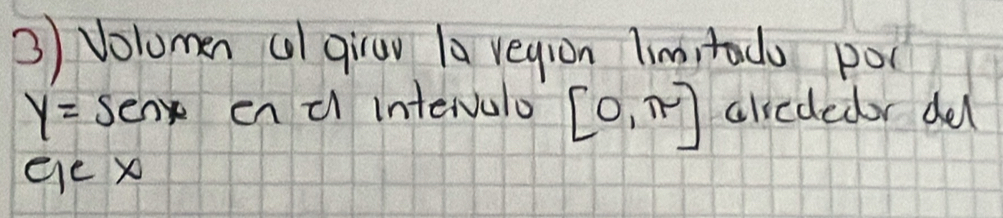 3) Volumen al girar la region limitada por
y = senx en el intervalo [0, π] alrededor del
eje x